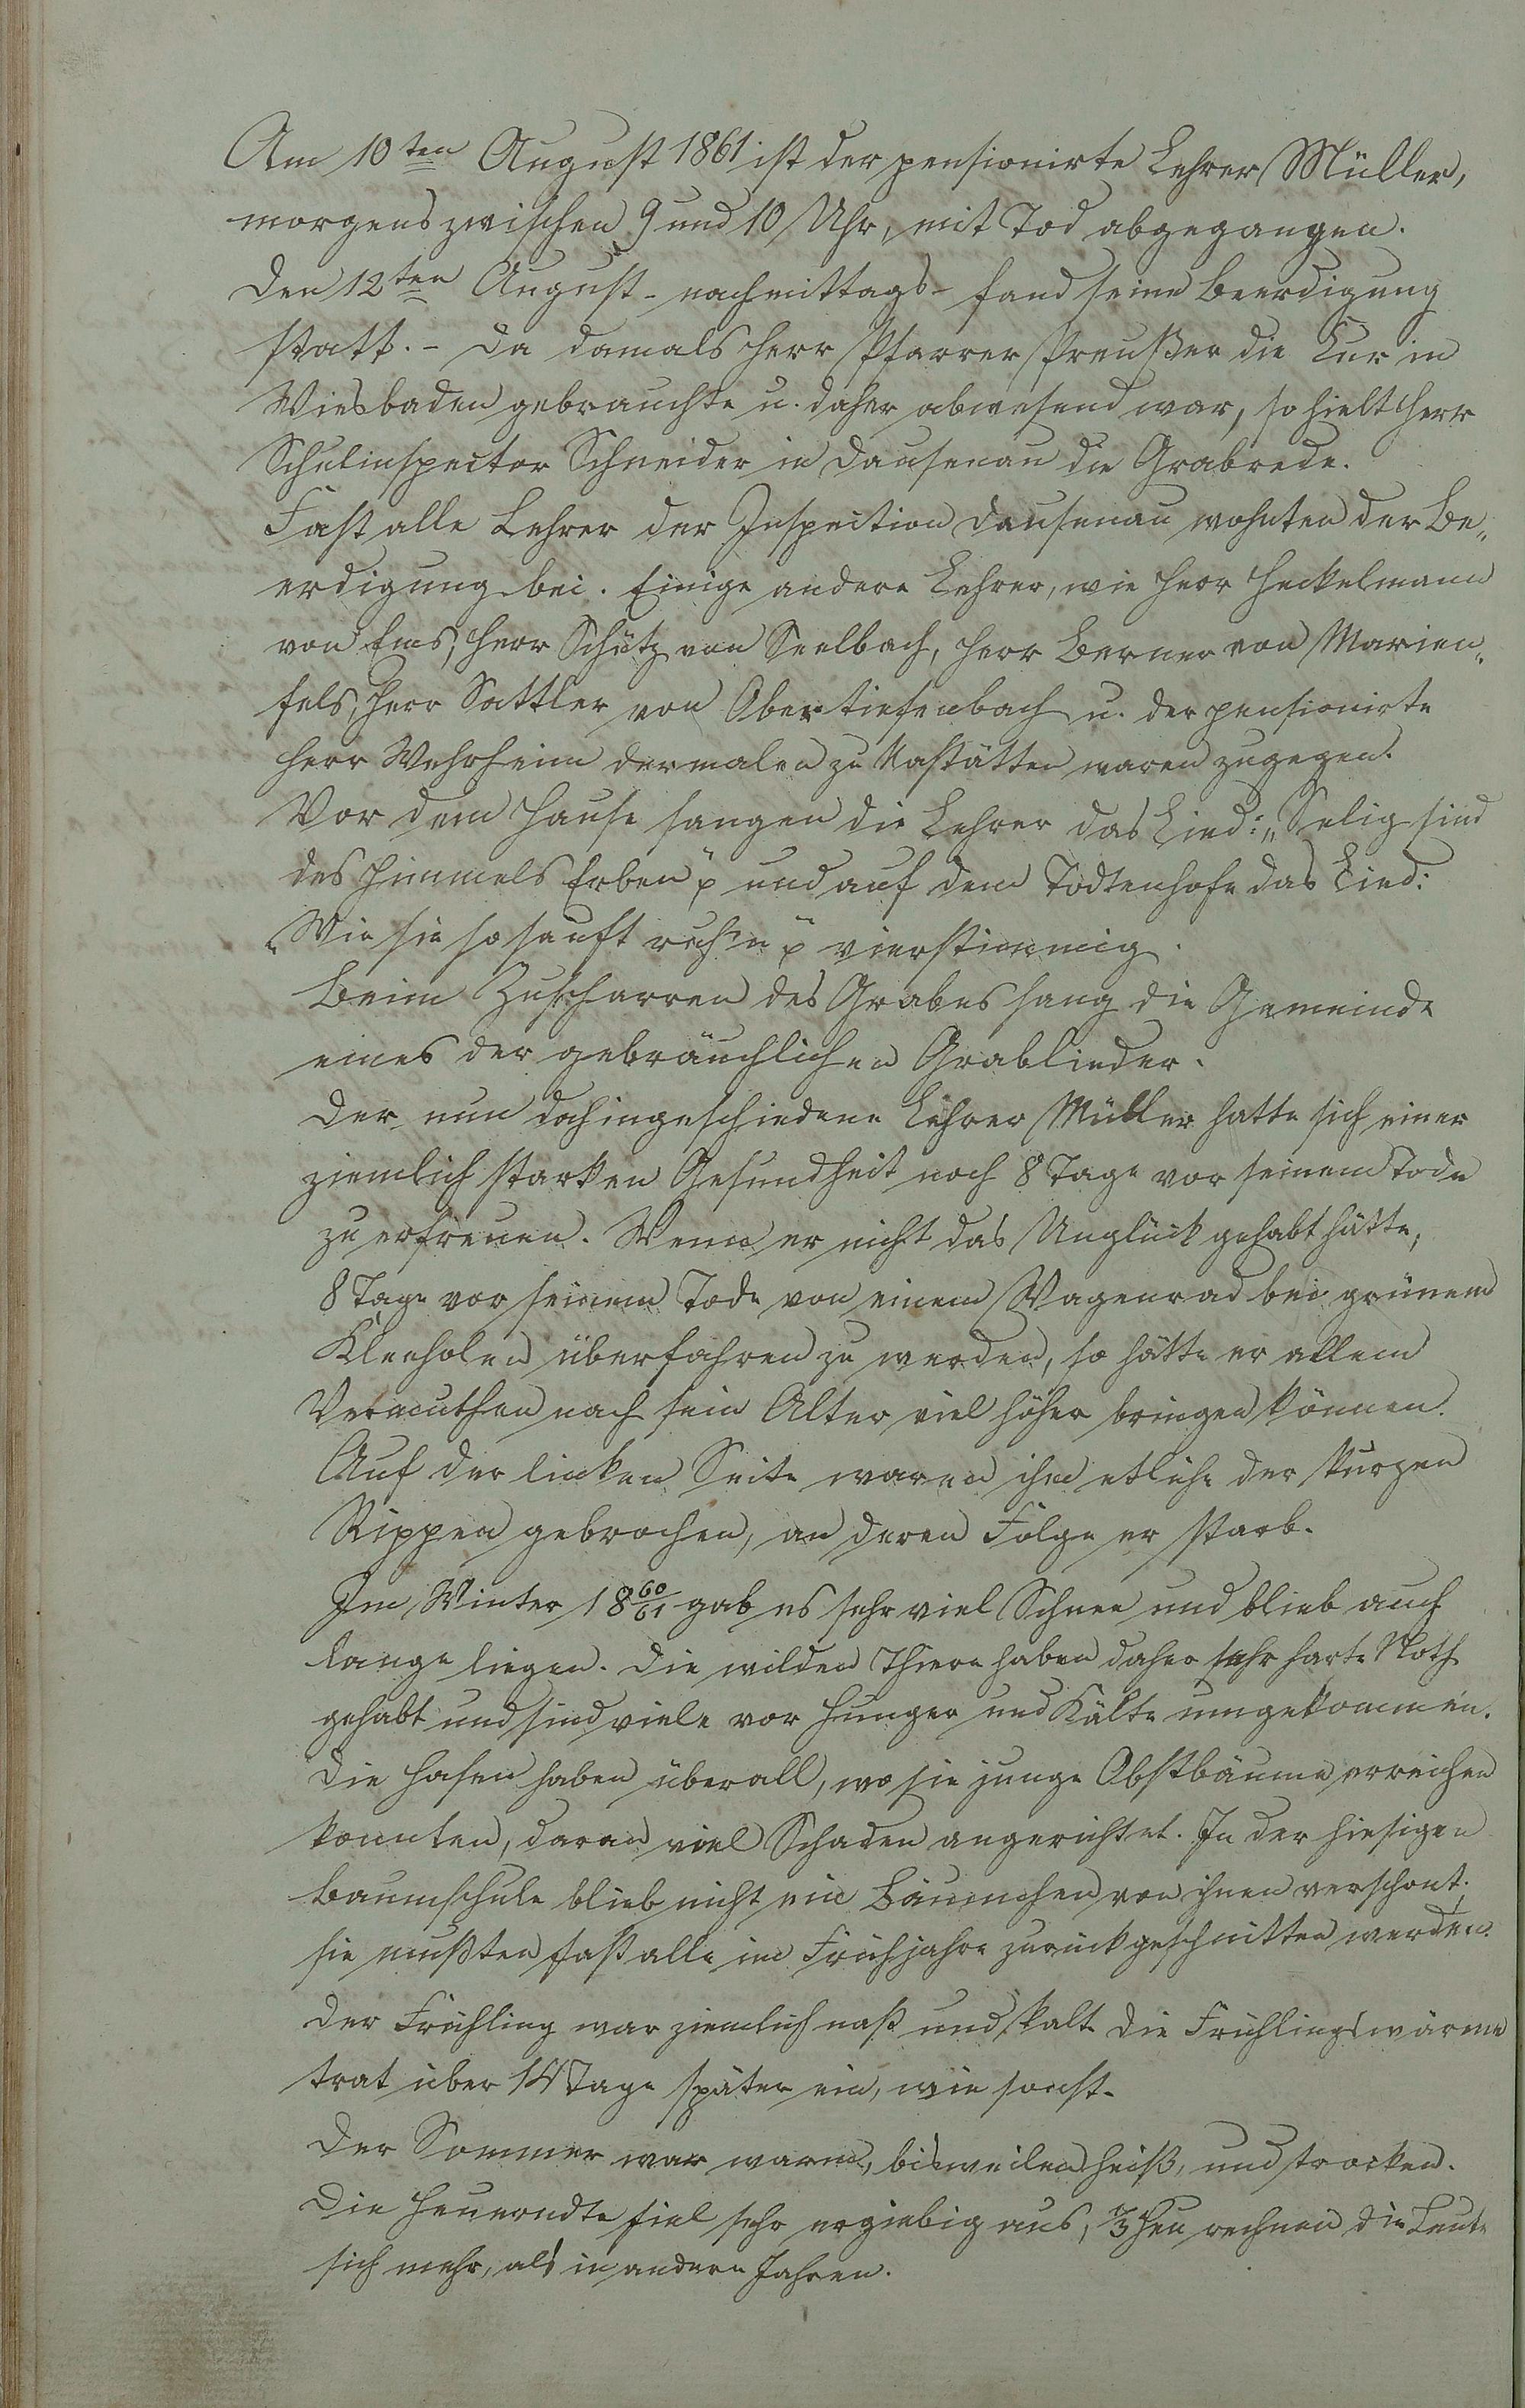 Am 10ten August 1861 ist der pensionirte Lehrer Müller,
morgens zwischen 9 und 10 Uhr, mit Tod abgegangen.
Den 12ten August - nachmittags - fand seine Beerdigung
statt. - Da damals Herr Pfarrer Preußer die Cur in
Wiesbaden gebrauchte u. daher abwesend war, so hielt Herr
Schulinspector Schneider in Dausenau die Grabrede.
Fast alle Lehrer der Inspection Dausenau wohnten der Be„
erdigung bei. Einige andere Lehrer, wie Herr Heckelmann
von Ems, Herr Schütz von Seelbach, Herr Berner von Marien„
fels, Herr Sattler von Obertiefenbach u. der pensionirte
Herr Wehrheim dermalen zu Nastätten waren zugegen.
Vor dem Hause sangen die Lehrer das Lied: „Selig sind
des Himmels Erben" p und auf dem Todtenhofe das Lied:
„Wie sie so sanft ruh'n" p vierstimmig.
Beim Zuscharren des Grabes sang die Gemeinde
eines der gebräuchlichen Grablieder.
Der nun dahingeschiedene Lehrer Müller hatte sich einer
ziemlich starken Gesundheit noch 8 Tage vor seinem Tode
zu erfreuen. Wenn er nicht das Unglück gehabt hätte,
8 Tage vor seinem Tode von einem Wagenrad bei grünem
Kleeholen überfahren zu werden, so hätte er allem
Vermuthen nach sein Alter viel höher bringen können.
Auf der linken Seite waren ihm etliche der kurzen
Rippen gebrochen, an deren Folge er starb.
Im Winter 1860/61 gab es sehr viel Schnee und blieb auch
lange liegen. Die wilden Thiere haben daher sehr harte Noth
gehabt und sind viele vor Hunger und Kälte umgekommen.
Die Hasen haben überall, wo sie junge Obstbäume erreichen
konnten, daran viel Schaden angerichtet. In der hiesigen
Baumschule blieb nicht ein Bäumchen von ihnen verschont;
sie mußten fast alle im Frühjahre zurückgeschnitten werden.
Der Frühling war ziemlich naß und kalt. Die Frühlingswärme
trat über 14 Tage später ein, wie sonst.
Der Sommer war warm, bisweilen heiß, und trocken.
Die Heuerndte fiel sehr ergiebig aus, Heu rechnen die Leute
sich mehr, als in andern Jahren.